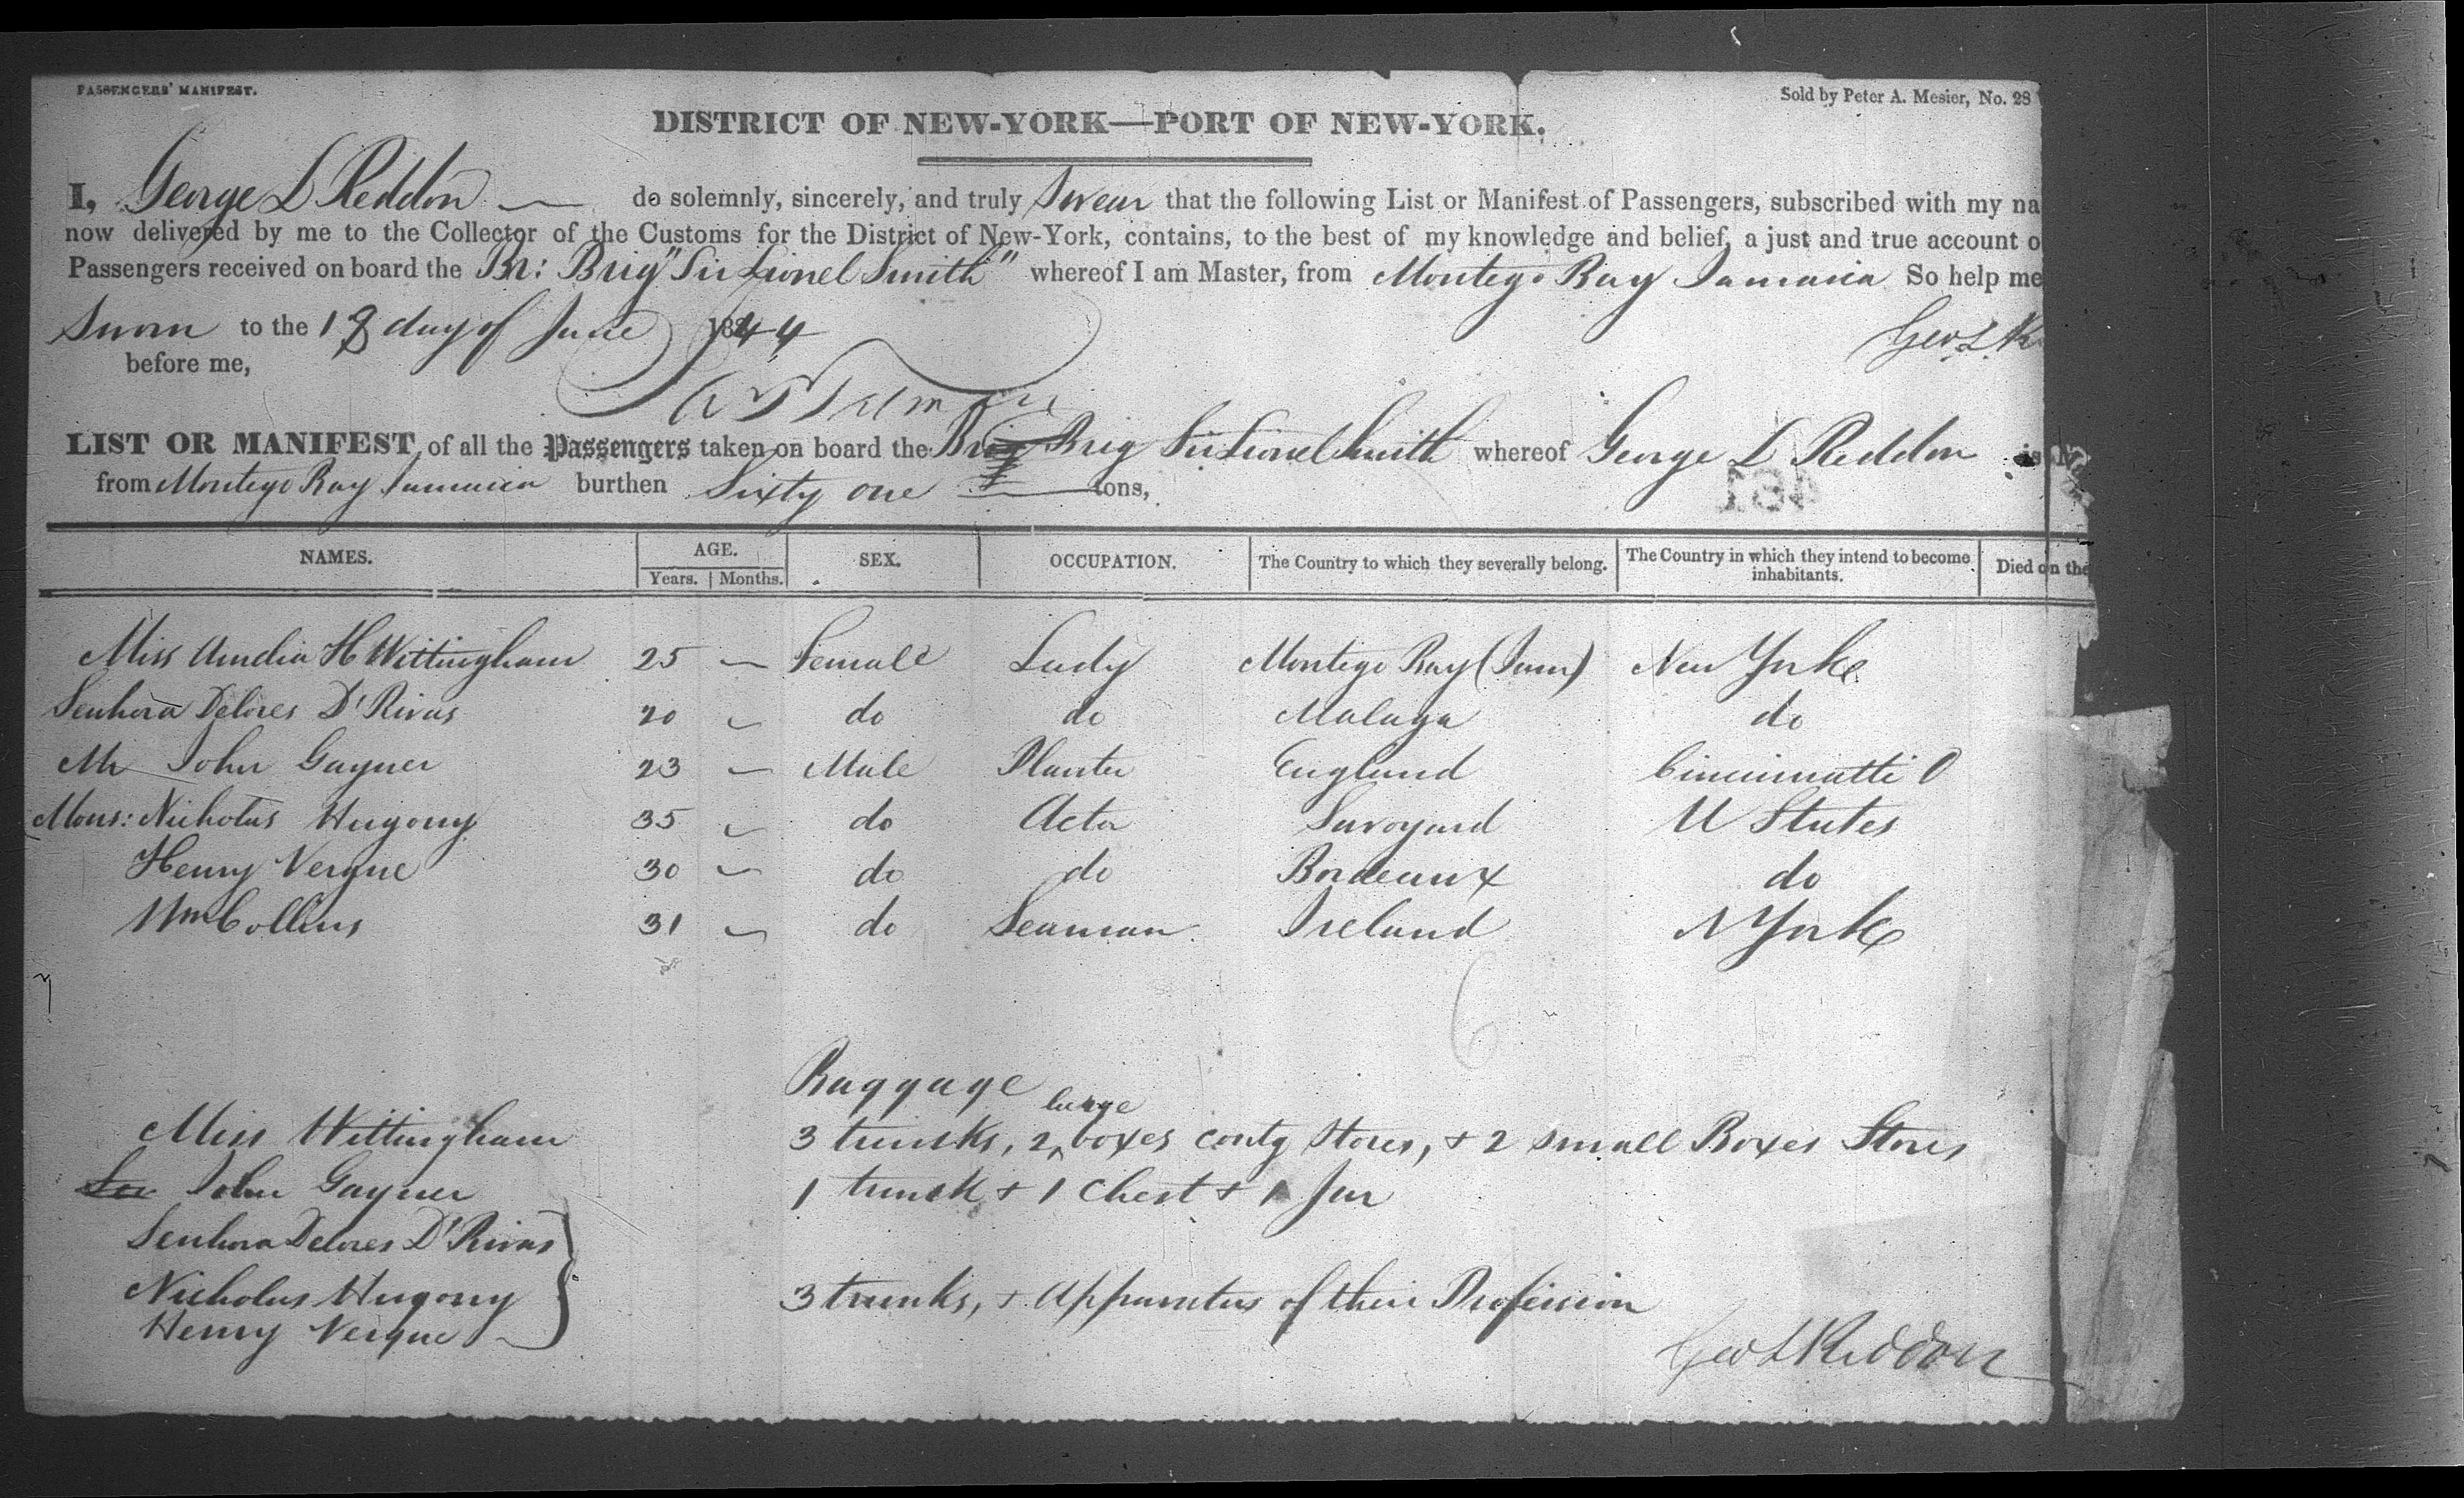 PASSENGERS' MANIFEST.
Sold by Peter A. Mesier, No. 28
DISTRICT OF NEW-YORK—PORT OF NEW-YORK.
I, George L Reddon — do solemnly, sincerely, and truly Swear that the following List or Manifest of Passengers, subscribed with my na
now delivered by me to the Collector of the Customs for the District of New-York, contains, to the best of my knowledge and belief, a just and true account o
Passengers received on board the Br: Brig "Sir Lionel Smith" whereof I am Master, from Montego Bay Jamaica So help me
Sworn to the 18 day of June 1844
Geo L R
before me,
LIST OR MANIFEST of all the Passengers taken on board the Brig Sir Lionel Smith whereof George L Reddon is
from Montego Bay Jamaica burthen Sixty one tons,
NAMES. AGE. SEX. OCCUPATION. The Country to which they severally belong. The Country in which they intend to become inhabitants. Died on the
Years. Months.
Miss Amelia H Wittingham 25 — Female Lady Montego Bay (Jam) New Yorke
Senhora Delores D'Rivas 20 — do do Malaga do
Mr John Gayner 23 — Male Planter England Cincinnatti O
Mons: Nicholas Hugony 35 — do Actor Savoyard U States
Henry Vergne 30 — do do Bordeaux do
Wm Collins 31 — do Seaman Ireland N Yorke
6
Baggage
Miss Wittingham 3 trunks, 2 large boxes contg Stores, + 2 small Boxes Stores
John Gayner 1 trunk + 1 Chest + 1 Jar
Senhora Delores D'Rivas
Nicholas Hugony 3 trunks, + Apparatus of their Profession
Henry Vergne
Geo L Reddon